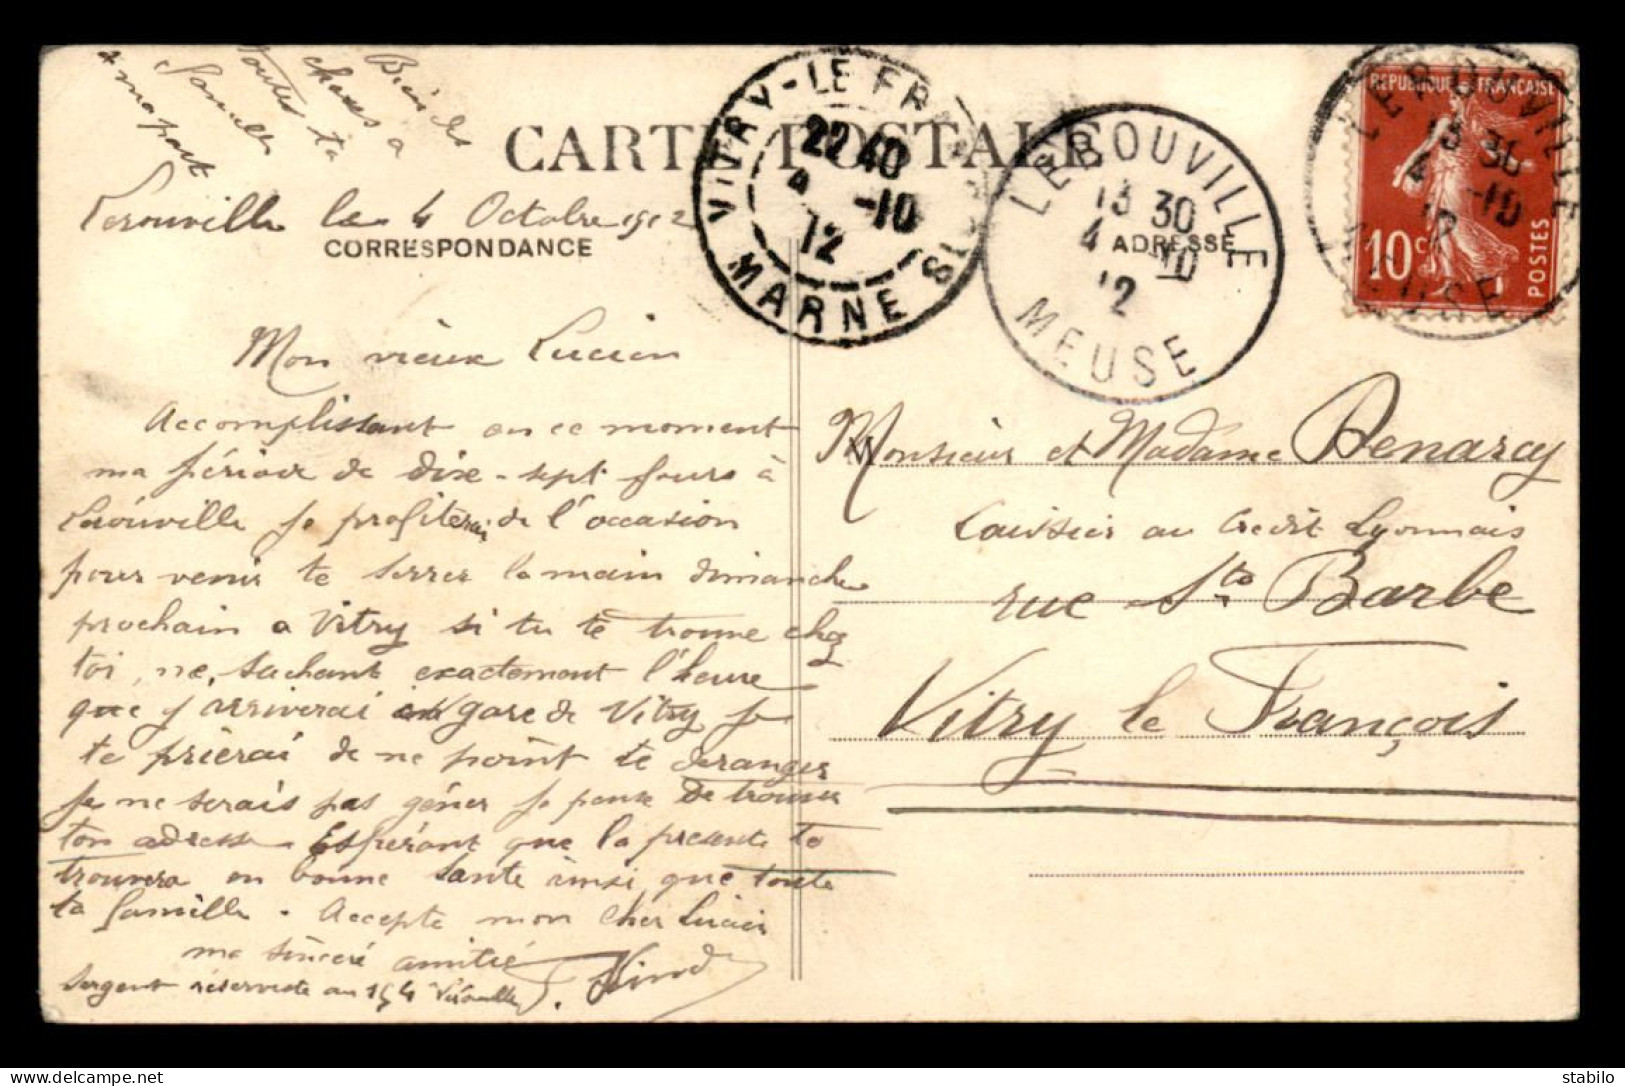 Bien des
choses a
toutes ta
famille
de ma part
CARTE POSTALE
Lerouville le 4 Octobre 1912
CORRESPONDANCE
Mon vieux Lucien
Accomplissant en ce moment
ma période de dix-sept jours à
Lérouville je profiterai de l'occasion
pour venir te serrer la main dimanche
prochain a Vitry si tu te trouve chez
toi, ne sachant exactement l'heure
que j'arriverai en gare de Vitry je
te prierai de ne point te déranger
je ne serais pas gêner je pense de trouver
ton adresse. Espérant que la présente te
trouvera en bonne santé ainsi que toute
ta famille. Accepte mon cher Lucien
ma sincère amitié
Sergent réserviste au 154 Lérouville
VITRY-LE-FRANÇOIS
22 40
4 -10
12
MARNE
LEROUVILLE
13 30
4 -10
12
MEUSE
ADRESSE
LEROUVILLE
13 30
4 -10
12
MEUSE
REPUBLIQUE FRANÇAISE
10c
POSTES
Monsieur et Madame Benarcy
Caissier au Credit Lyonnais
rue Ste Barbe
Vitry le François
delcampe.net
stabilo